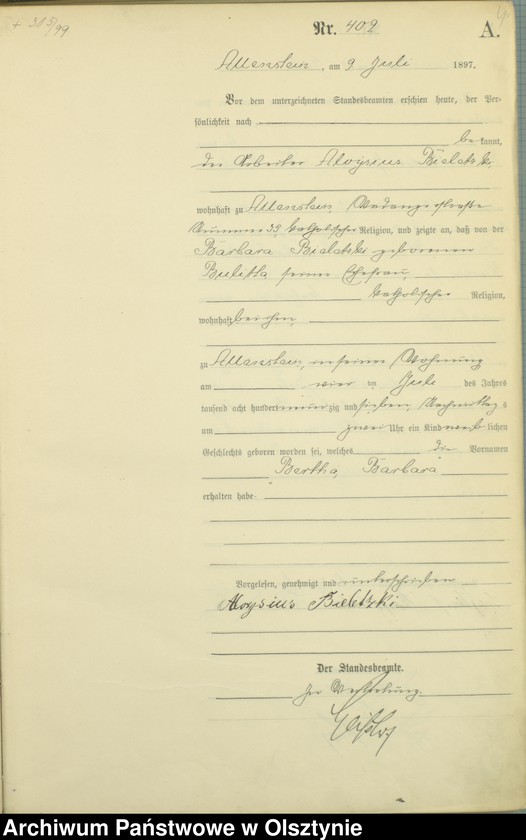 + 305/99
Nr. 402
A.
Allenstein, am 9 Juli 1897.
Vor dem unterzeichneten Standesbeamten erschien heute, der Per-
sönlichkeit nach
bekannt,
der Arbeiter Aloysius Bieletzki
wohnhaft zu Allenstein, Wadangerstraße
Nummer 39, katholischer Religion, und zeigte an, daß von der
Barbara Bieletzki geborenen
seiner Ehefrau,
katholischer Religion,
wohnhaft bei ihm,
zu Allenstein, in seiner Wohnung
am vier ten Juli des Jahres
tausend acht hundert neunzig und sieben, Nachmittags
um zwei Uhr ein Kind weiblichen
Geschlechts geboren worden sei, welches die Vornamen
Bertha, Barbara
erhalten habe.
Vorgelesen, genehmigt und unterschrieben
Aloysius Bieletzki
Der Standesbeamte.
In Vertretung.
Archiwum Państwowe w Olsztynie